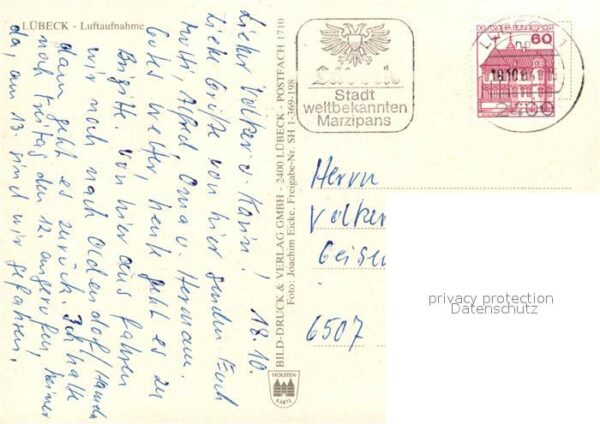 LÜBECK - Luftaufnahme
18.10.
Lieber Volker u. Karin!
Liebe Grüße von hier senden Euch
Mutti, Alfred Oma u. Hermann.
Gutes Wetter, heute geht es zu
Brigitte. Von hier aus fahren
wir noch nach Oldendorf/Hameln
dann geht es zurück. Ich hatte
noch Freitag den 12. angerufen, keiner
da, am 13. sind wir gefahren.
BILD-DRUCK & VERLAG GMBH - 2400 LÜBECK - POSTFACH 1710
Foto: Joachim Eicke, Freigabe-Nr. SH 1-369-198
HOLSTEN
KARTE
Lübeck
Stadt
weltbekannten
Marzipans
DEUTSCHE BUNDESPOST
60
18.10.
2400
Herrn
Volker
6507
privacy protection
Datenschutz